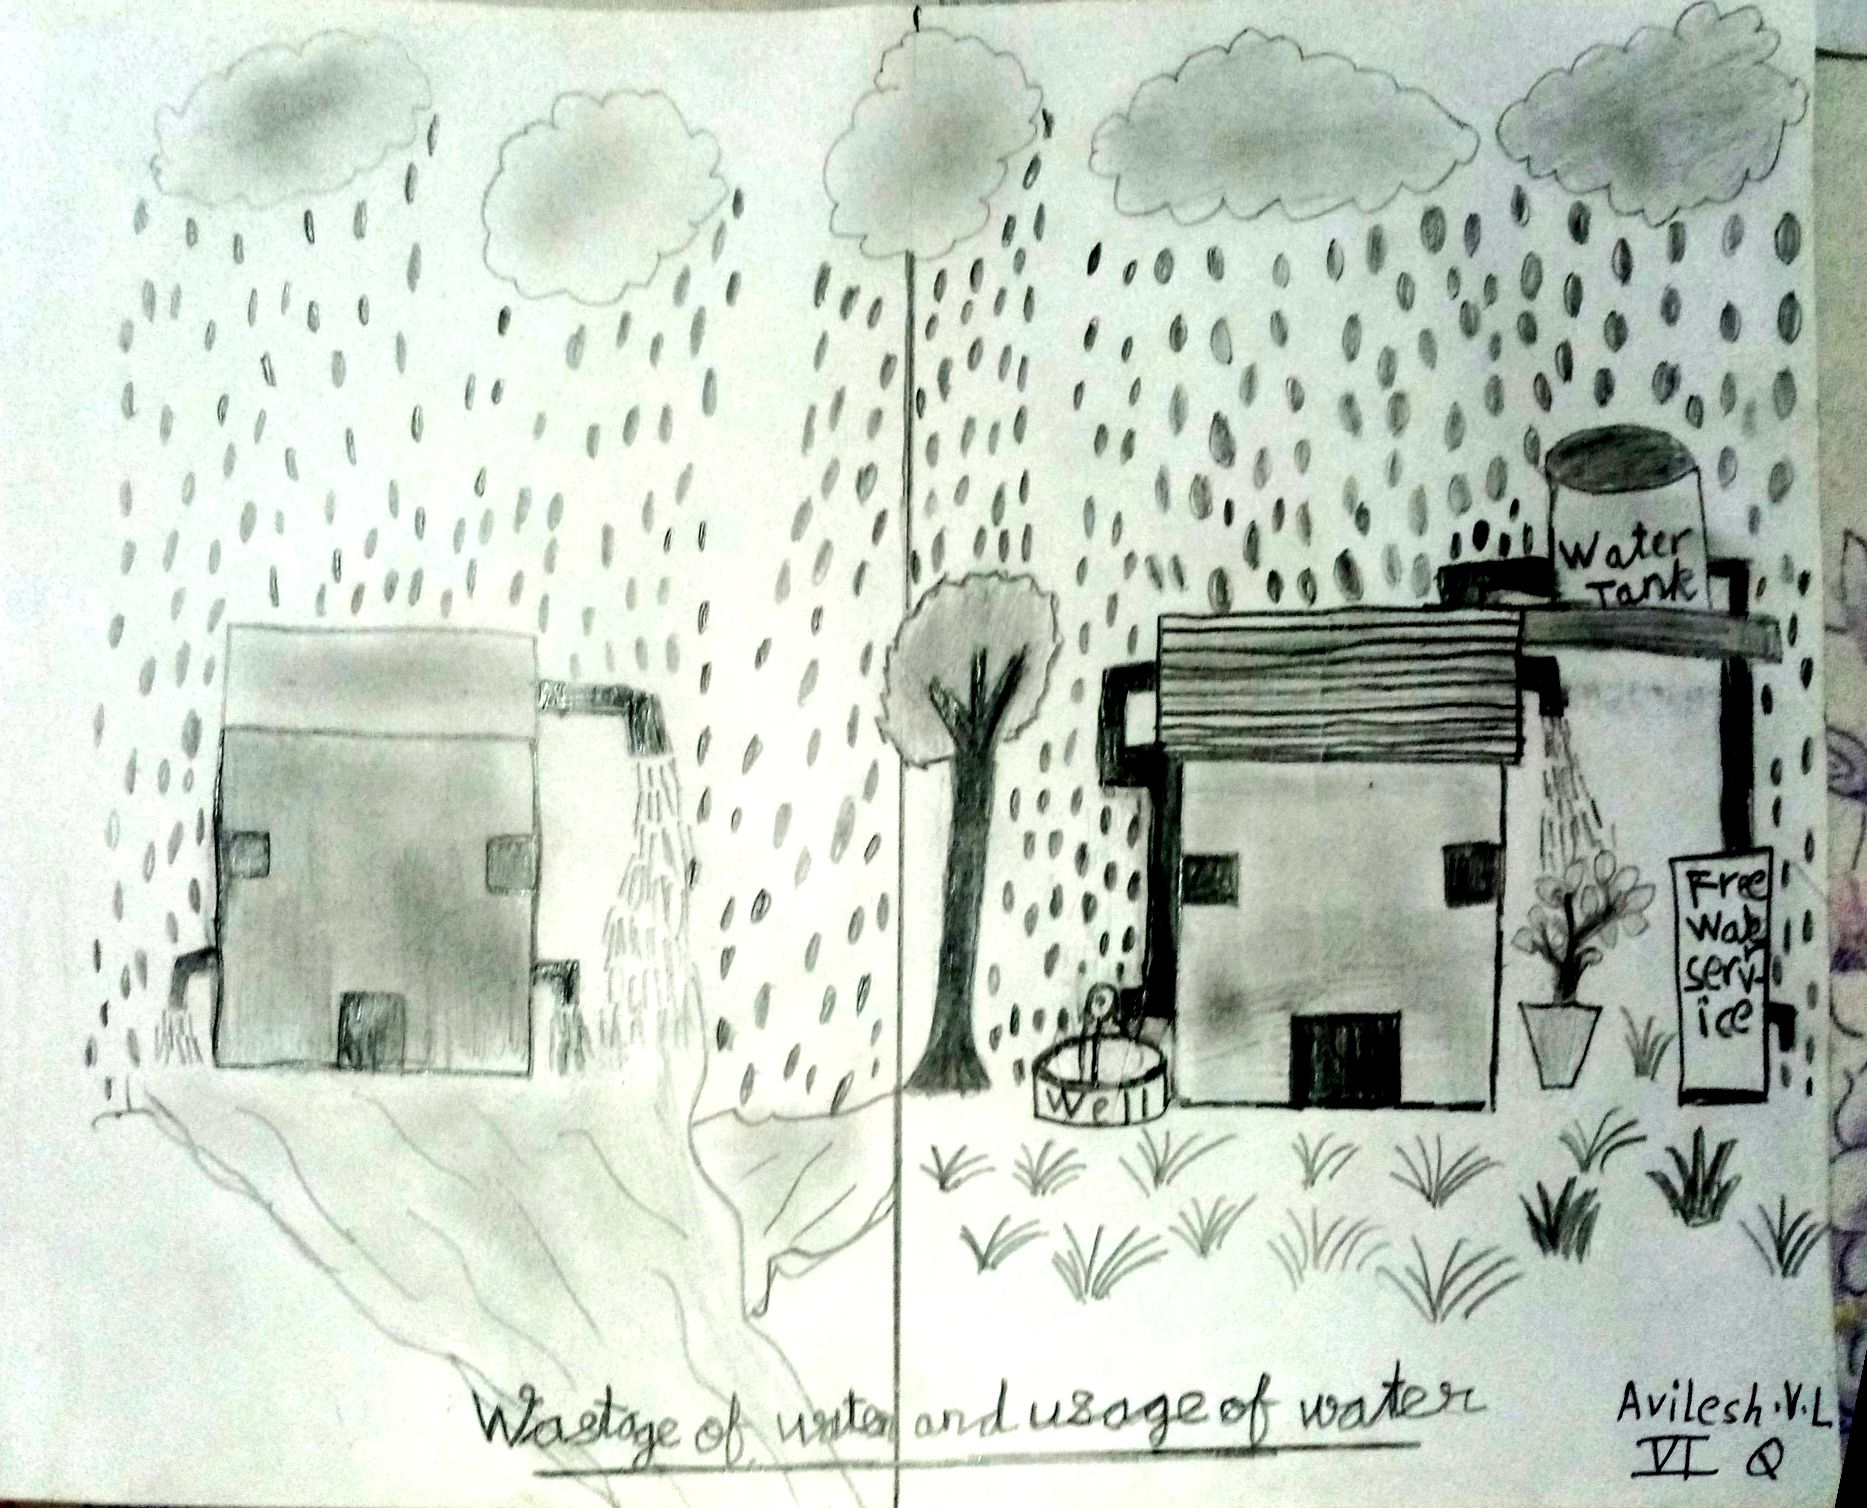 Water
Tank
Free
Water
serv-
ice
Well
Wastage of water and usage of water
Avilesh.V.L
VI Q